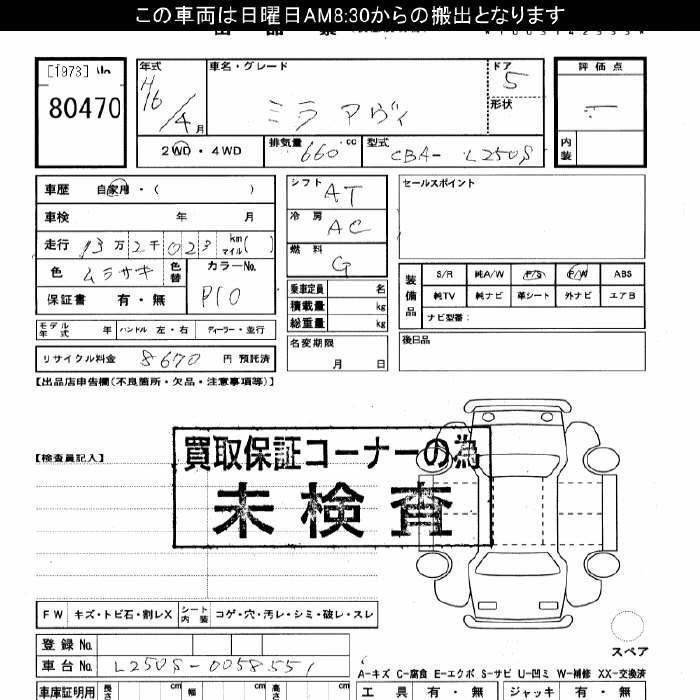 この車両は日曜日AM8:30からの搬出となります
[1973]
80470
年式 H16/4月
車名・グレード ミラ アヴィ
ドア 5
形状
2WD・4WD
排気量 660 cc
型式 CBA- L250S
評価点
内装
車歴 自家用・( )
車検 年 月
走行 13万2千023 km マイル( )
色 ムラサキ 色替 カラーNo. P10
保証書 有・無
シフト AT
冷房 AC
燃料 G
乗車定員 名
積載量 kg
総重量 kg
名変期限 月 日
セールスポイント
装備品 S/R 純A/W P/S P/W ABS
純TV 純ナビ 革シート 外ナビ エアB
ナビ型番:
後日品
モデル年式 年 ハンドル 左・右 ディーラー・並行
リサイクル料金 8670 円 預託済
【出品店申告欄(不良箇所・欠品・注意事項等)】
【検査員記入】
買取保証コーナーの為
未検査
FW キズ・トビ石・割レX シート内装 コゲ・穴・汚レ・シミ・破レ・スレ
スペア
登録No.
車台No. L250S-0058551
A-キズ C-腐食 E-エクボ S-サビ U-凹ミ W-補修 XX-交換済
車庫証明用 長さ cm 幅 cm 高さ cm
工具 有・無 ジャッキ 有・無